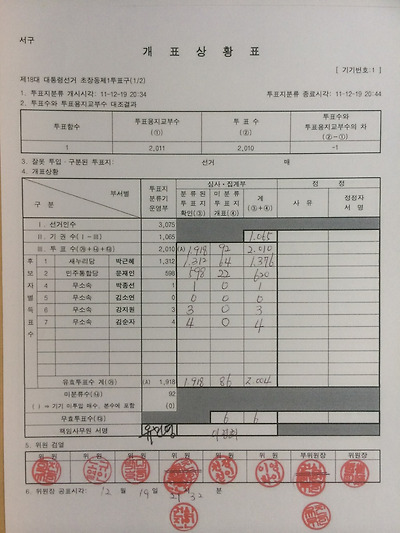 서구
개 표 상 황 표
[ 기기번호: 1 ]
제18대 대통령선거 초장동제1투표구(1/2)
1. 투표지분류 개시시각: 11-12-19 20:34 투표지분류 종료시각: 11-12-19 20:44
2. 투표수와 투표용지교부수 대조결과
투표함수 투표용지교부수 (①) 투 표 수 (②) 투표수와 투표용지교부수의 차 (②-①)
1 2,011 2,010 -1
3. 잘못 투입·구분된 투표지: 선거 매
4. 개표상황
구 분 부서별 투표지 분류기 운영부 심사·집계부 정 정
분류된 투표지 확인(③) 미분류 투표지 개표(④) 계 (③+④) 사 유 정정자 서 명
Ⅰ. 선거인수 3,075
Ⅱ. 기 권 수(Ⅰ-Ⅲ) 1,065 1.065
Ⅲ. 투 표 수 2,010 (A) 1.918 92 2.010
후보자별득표수
1 새누리당 박근혜 1,312 1.312 64 1.376
2 민주통합당 문재인 598 598 22 620
3 무소속 박종선 1 1 0 1
4 무소속 김소연 0 0 0 0
5 무소속 강지원 3 3 0 3
7 무소속 김순자 4 4 0 4
유효투표수 계 (A) 1,918 1.918 86 2.004
미분류수 92
( ) → 기기 미투입 매수, 분수에 포함 (0)
무효투표수 6 6
책임사무원 서명
5. 위원 검열
위 원 위 원 위 원 위 원 위 원 위 원 부위원장 위원장
6. 위원장 공표시각: 12 월 19 일 21 32 분